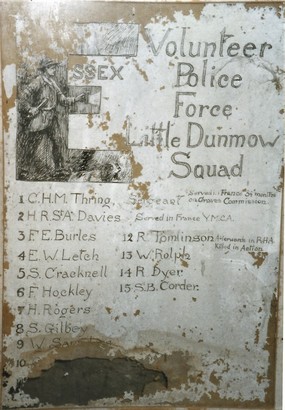 ESSEX
Volunteer
Police
Force
Little Dunmow
Squad
1 C.H.M. Thring, Sergeant Served in France 
Graves Commission.
2 H.R.StA. Davies Served in France Y.M.C.A.
3 F.E. Burles
4 E.W. Letch
5 S. Cracknell
6 F. Hockley
7 H. Rogers
8 S. Gilbey
9 W.
10
12 R. Tomlinson Afterwards in R.H.A.
Killed in Action.
13 W. Rolph
14 R. Dyer.
15 S.B. Corder.